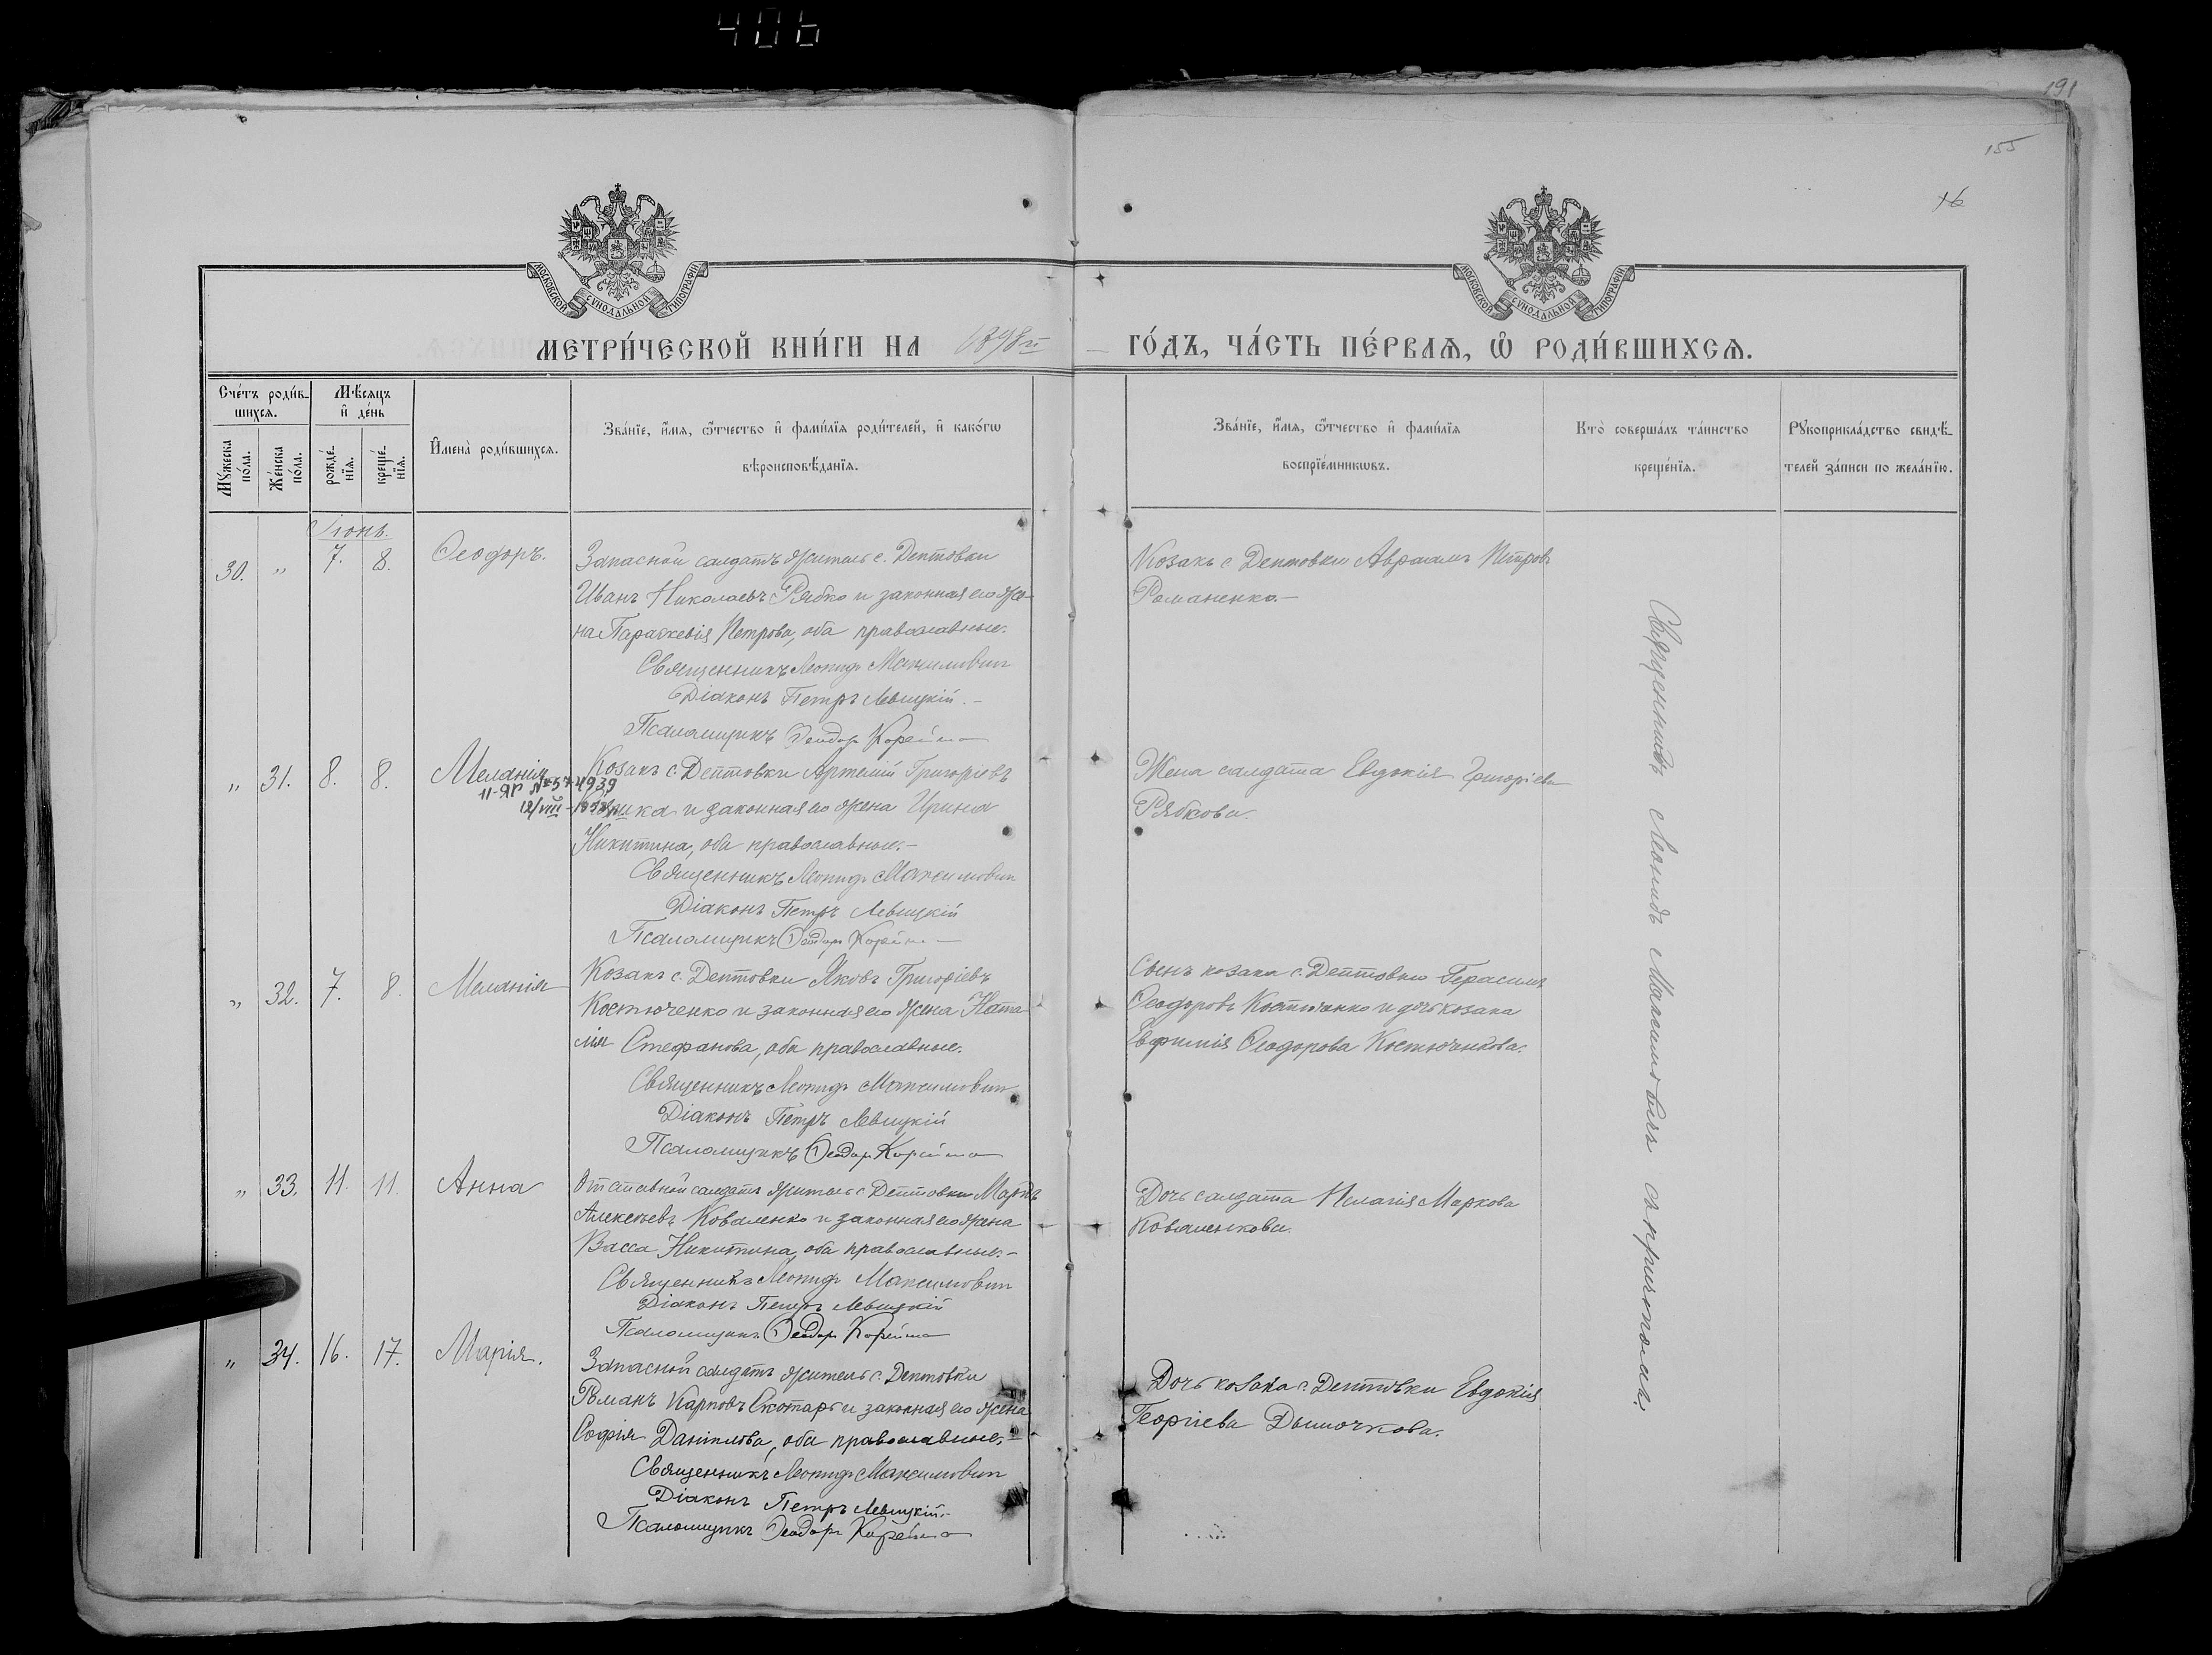 406
191
155
16
МОСКОВСКОЙ СУНОДАЛЬНОЙ ТИПОГРАФІИ
МОСКОВСКОЙ СУНОДАЛЬНОЙ ТИПОГРАФІИ
МЕТРИ́ЧЕСКОЙ КНИ́ГИ НА 1898й
ГО́ДЪ, ЧА́СТЬ ПЕ́РВАѦ, Ѡ РОДИ́ВШИХСѦ.
Сче́тъ роди́вшихсѧ.
Мѣ́сѧцъ и҆ де́нь
Мꙋ́жеска по́ла.
Же́нска по́ла.
рожде́нїѧ.
креще́нїѧ.
И҆мена̀ роди́вшихсѧ.
Зва́нїе, и҆́мѧ, ѻ҆́тчество и҆ фами́лїѧ роди́телей, и҆ како́гѡ
вѣроисповѣ́данїѧ.
Зва́нїе, и҆́мѧ, ѻ҆́тчество и҆ фами́лїѧ
воспрїе́мникѡвъ.
Кто̀ соверша́лъ та́инство
креще́нїѧ.
Рꙋкоприкла́дство свидѣ́-
телей за́писи по жела́нїю.
Іюнь.
30. " 7. 8. Ѳеодоръ.
Запасной солдатъ житель с. Дептовки
Иванъ Николаевъ Рябко и законная его же-
на Параскевія Петрова, оба православные.
Священникъ Леонидъ Максимовичъ
Діаконъ Петръ Левицкій.
Псаломщикъ Ѳеодоръ
Козакъ с. Дептовки Авраамъ Петровъ
Романенко.
" 31. 8. 8. Меланія
11-ЯР №574939
Козакъ с. Дептовки Артемій Григоріевъ
и законная его жена Ирина
Никитина, оба православные.
Священникъ Леонидъ Максимовичъ
Діаконъ Петръ Левицкій
Псаломщикъ Ѳеодоръ
Жена солдата Евдокія Григоріева
Рябкова.
" 32. 7. 8. Меланія
Козакъ с. Дептовки Яковъ Григоріевъ
Костюченко и законная его жена Ната-
лія Стефанова, оба православные.
Священникъ Леонидъ Максимовичъ
Діаконъ Петръ Левицкій
Псаломщикъ Ѳеодоръ
Сынъ козака с. Дептовки Герасимъ
Ѳеодоровъ Костюченко и дочь козака
Евфимія Ѳеодорова Костюченкова.
" 33. 11. 11. Анна
Отставной солдатъ житель с. Дептовки Маркъ
Алексѣевъ Коваленко и законная его жена
Васса Никитина, оба православные.
Священникъ Леонидъ Максимовичъ
Діаконъ Петръ Левицкій
Псаломщикъ Ѳеодоръ
Дочь солдата Пелагія Маркова
Коваленкова.
" 34. 16. 17. Марія.
Запасной солдатъ житель с. Дептовки
Романъ Карповъ Скотарь и законная его жена
Софія Даніилова, оба православные.
Священникъ Леонидъ Максимовичъ
Діаконъ Петръ Левицкій.
Псаломщикъ Ѳеодоръ
Дочь козака с. Дептовки Евдокія
Георгіева Дымочкова.
Священникъ Леонидъ Максимовичъ съ причтомъ.